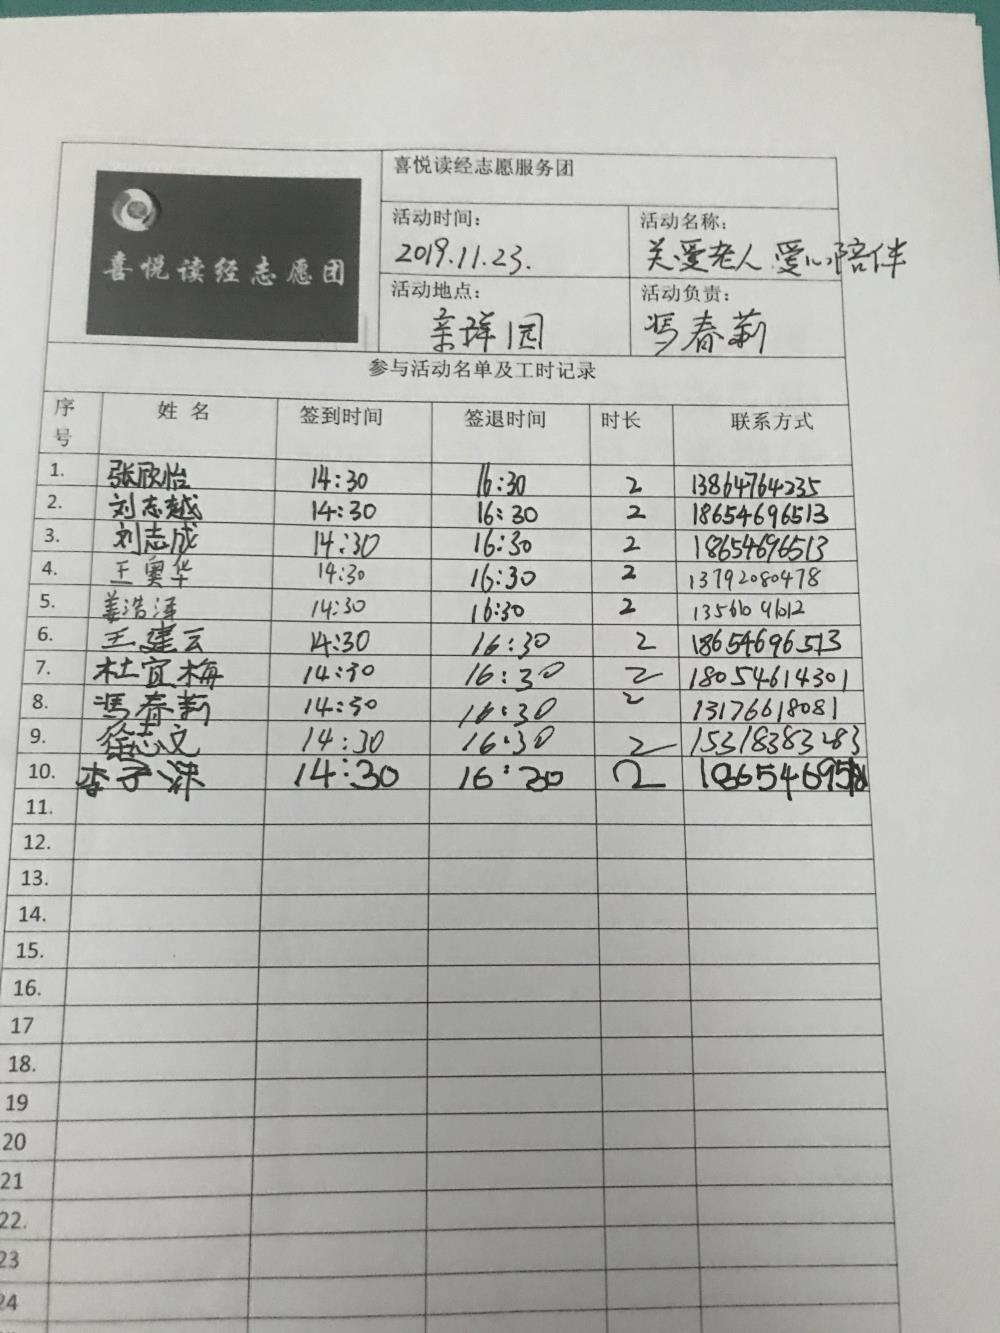 喜悦读经志愿团
喜悦读经志愿服务团
活动时间: 活动名称:
2019.11.23. 关爱老人 爱心陪伴
活动地点: 活动负责:
祥园 冯春莉
参与活动名单及工时记录
序号 姓 名 签到时间 签退时间 时长 联系方式
1. 张欣怡 14:30 16:30 2 13864764235
2. 刘志越 14:30 16:30 2 18654696513
3. 刘志成 14:30 16:30 2 18654696513
4. 王 华 14:30 16:30 2 13792080478
5. 姜浩泽 14:30 16:30 2
6. 王建云 14:30 16:30 2 18654696513
7. 杜宜梅 14:30 16:30 2 18054614301
8. 冯春莉 14:30 16:30 2 13176618081
9. 徐志文 14:30 16:30 2 15318383283
10. 李子沫 14:30 16:30 2
11.
12.
13.
14.
15.
16.
17
18.
19
20
21
22.
23
24